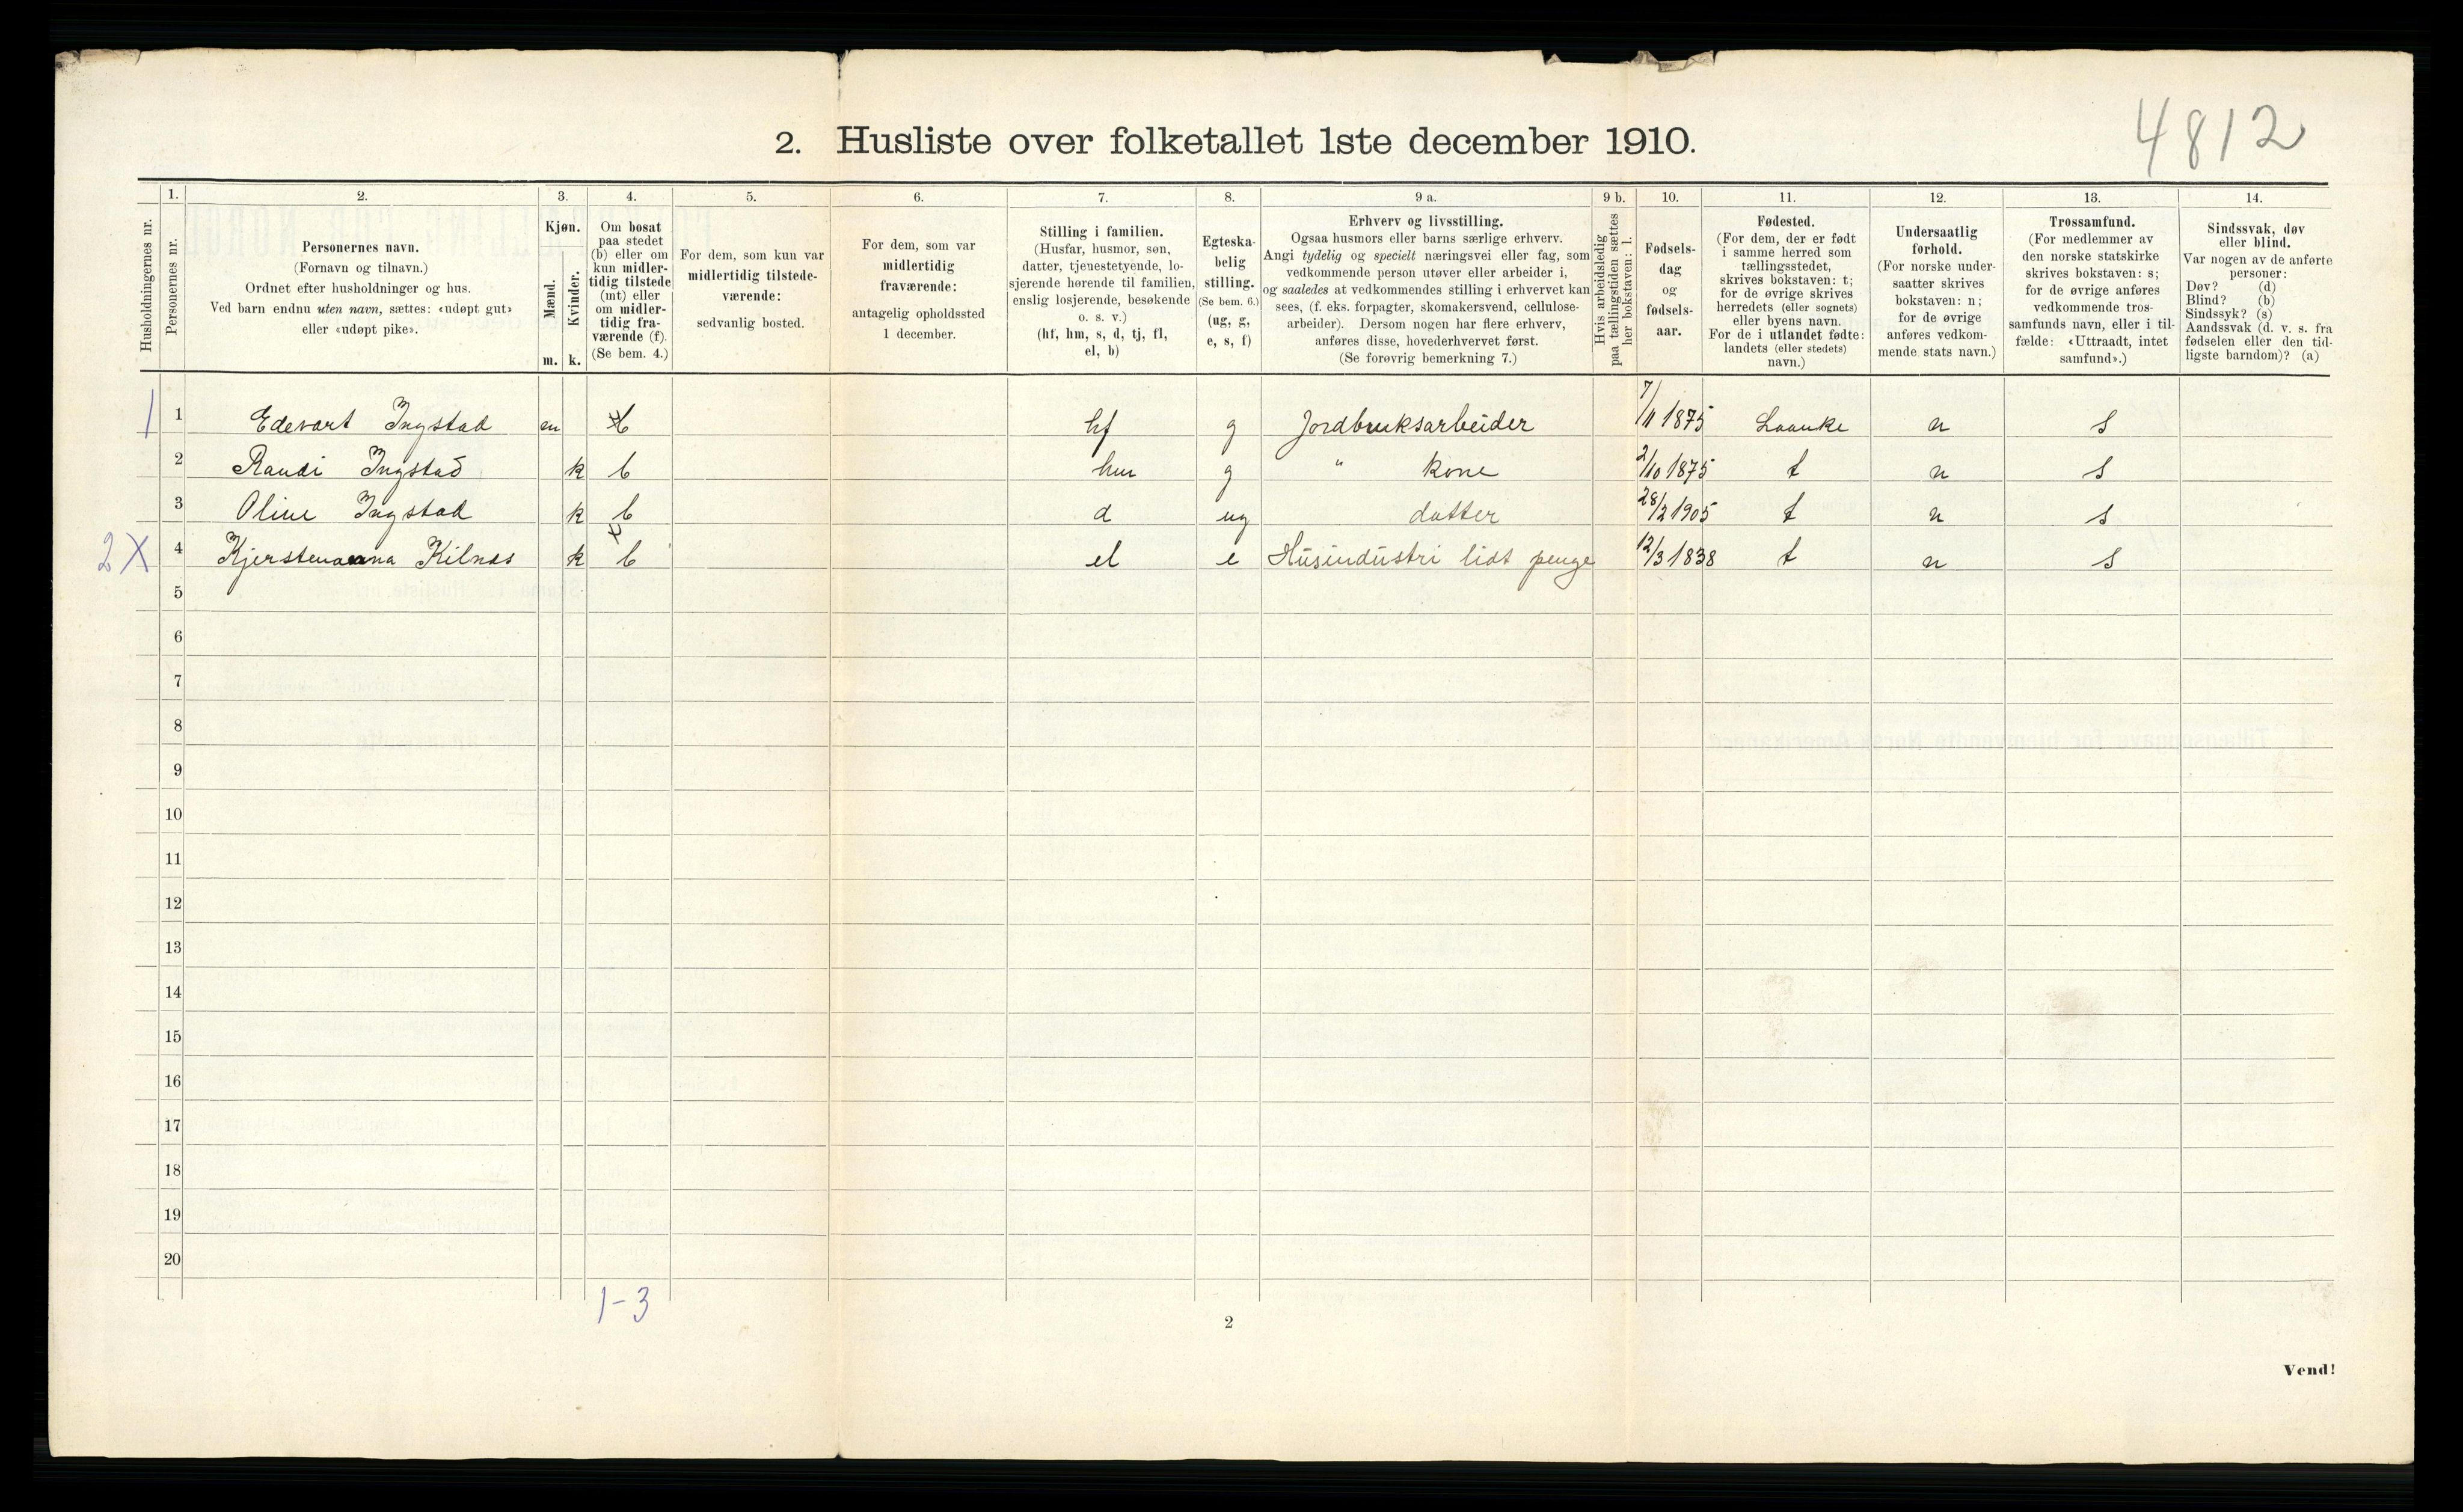 4812
2. Husliste over folketallet 1ste december 1910.
Husholdningernes nr.
1.
Personernes nr.
2.
Personernes navn.
(Fornavn og tilnavn.)
Ordnet efter husholdninger og hus.
Ved barn endnu uten navn, sættes: «udøpt gut»
eller «udøpt pike».
3.
Kjøn.
Mænd.
m.
Kvinder.
k.
4.
Om bosat
paa stedet
(b) eller om
kun midler-
tidig tilstede
(mt) eller
om midler-
tidig fra-
værende (f).
(Se bem. 4.)
5.
For dem, som kun var
midlertidig tilstede-
værende:
sedvanlig bosted.
6.
For dem, som var
midlertidig
fraværende:
antagelig opholdssted
1 december.
7.
Stilling i familien.
(Husfar, husmor, søn,
datter, tjenestetyende, lo-
sjerende hørende til familien,
enslig losjerende, besøkende
o. s. v.)
(hf, hm, s, d, tj, fl,
el, b)
8.
Egteska-
belig
stilling.
(Se bem. 6.)
(ug, g,
e, s, f)
9 a.
Erhverv og livsstilling.
Ogsaa husmors eller barns særlige erhverv.
Angi tydelig og specielt næringsvei eller fag, som
vedkommende person utøver eller arbeider i,
og saaledes at vedkommendes stilling i erhvervet kan
sees, (f. eks. forpagter, skomakersvend, cellulose-
arbeider). Dersom nogen har flere erhverv,
anføres disse, hovederhvervet først.
(Se forøvrig bemerkning 7.)
9 b.
Hvis arbeidsledig
paa tællingstiden sættes
her bokstaven: l.
10.
Fødsels-
dag
og
fødsels-
aar.
11.
Fødested.
(For dem, der er født
i samme herred som
tællingsstedet,
skrives bokstaven: t;
for de øvrige skrives
herredets (eller sognets)
eller byens navn.
For de i utlandet fødte:
landets (eller stedets)
navn.)
12.
Undersaatlig
forhold.
(For norske under-
saatter skrives
bokstaven: n;
for de øvrige
anføres vedkom-
mende stats navn.)
13.
Trossamfund.
(For medlemmer av
den norske statskirke
skrives bokstaven: s;
for de øvrige anføres
vedkommende tros-
samfunds navn, eller i til-
fælde: «Uttraadt, intet
samfund».)
14.
Sindssvak, døv
eller blind.
Var nogen av de anførte
personer:
Døv? (d)
Blind? (b)
Sindssyk? (s)
Aandssvak (d. v. s. fra
fødselen eller den tid-
ligste barndom)? (a)
1 1 Edevart Ingstad m b hf g Jordbruksarbeider 7/11 1875 Laanke n s
2 Randi Ingstad k b hm g " kone 2/10 1875 t n s
3 Oline Ingstad k b d ug datter 28/2 1905 t n s
2 X 4 Kjerstenanna Kilnes k b el e Husindustri lidt penge 12/3 1838 t n s
5
6
7
8
9
10
11
12
13
14
15
16
17
18
19
20
1-3
2
Vend!